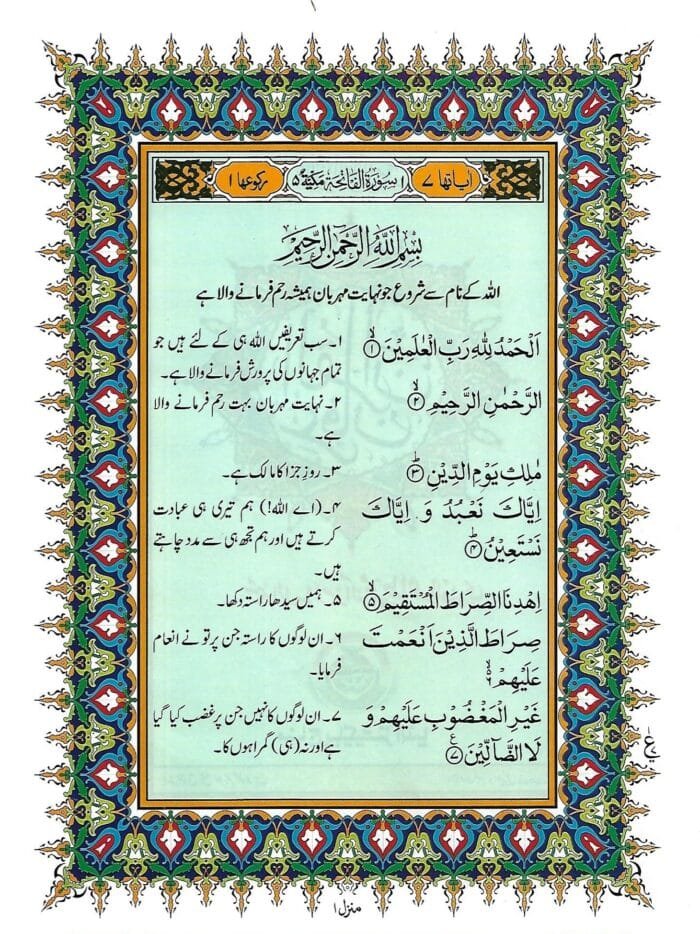 اٰیاتها ۷ ۱ سُوْرَةُ الْفَاتِحَةِ مَكِّیَّةٌ ۵ رکوعها ۱
بِسْمِ اللّٰهِ الرَّحْمٰنِ الرَّحِیْمِ
اللہ کے نام سے شروع جو نہایت مہربان ہمیشہ رحم فرمانے والا ہے
اَلْحَمْدُ لِلّٰهِ رَبِّ الْعٰلَمِیْنَۙ﴿۱﴾
۱۔ سب تعریفیں اللہ ہی کے لئے ہیں جو
تمام جہانوں کی پرورش فرمانے والا ہے۔
الرَّحْمٰنِ الرَّحِیْمِۙ﴿۲﴾
۲۔ نہایت مہربان بہت رحم فرمانے والا
ہے۔
مٰلِكِ یَوْمِ الدِّیْنِؕ﴿۳﴾
۳۔ روزِ جزا کا مالک ہے۔
اِیَّاكَ نَعْبُدُ وَ اِیَّاكَ
نَسْتَعِیْنُؕ﴿۴﴾
۴۔ (اے اللہ!) ہم تیری ہی عبادت
کرتے ہیں اور ہم تجھ ہی سے مدد چاہتے
ہیں۔
اِهْدِنَا الصِّرَاطَ الْمُسْتَقِیْمَۙ﴿۵﴾
۵۔ ہمیں سیدھا راستہ دکھا۔
صِرَاطَ الَّذِیْنَ اَنْعَمْتَ
عَلَیْهِمْ ۙ۬۶
۶۔ ان لوگوں کا راستہ جن پر تو نے انعام
فرمایا۔
غَیْرِ الْمَغْضُوْبِ عَلَیْهِمْ وَ
لَا الضَّآلِّیْنَ۠﴿۷﴾
۷۔ ان لوگوں کا نہیں جن پر غضب کیا گیا
ہے اور نہ (ہی) گمراہوں کا۔
منزل ۱